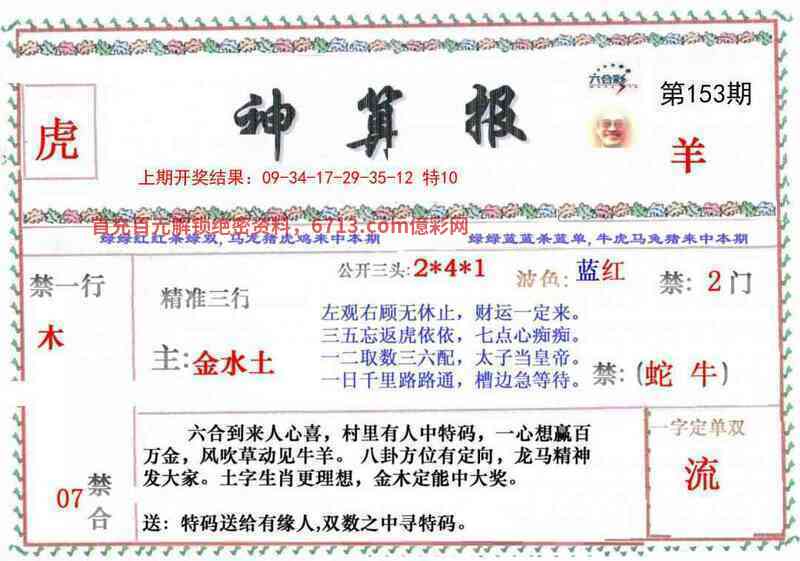 六合彩
第153期
虎
神算报
羊
上期开奖结果：09-34-17-29-35-12 特10
首充百元解锁绝密资料，6713.com億彩网
绿绿红红杀绿双,马龙猪虎鸡来中本期
绿绿蓝蓝杀蓝单,牛虎马兔猪来中本期
禁一行
木
精准三行
主:金水土
公开三头:2*4*1
波色:蓝红
禁:2门
左观右顾无休止，财运一定来。
三五忘返虎依依，七点心痴痴。
一二取数三六配，太子当皇帝。
一日千里路路通，槽边急等待。
禁:(蛇 牛)
07禁合
六合到来人心喜，村里有人中特码，一心想赢百
万金，风吹草动见牛羊。 八卦方位有定向，龙马精神
发大家。土字生肖更理想，金木定能中大奖。
送：特码送给有缘人,双数之中寻特码。
一字定单双
流